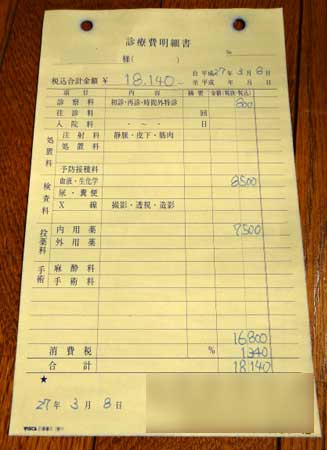 診療費明細書
様( ) №
税込合計金額 ¥ 18,140- 自 平成27年 3月 8日
至 平成 年 月 日
項 目 内 容 摘要 金額(税抜・税込)
診察料 初診・再診・時間外特診 800
往診料 回
入院料 ・ ~ ・ 日
処置料 注射料 静脈・皮下・筋肉
処置料
予防接種料
検査料 血液・生化学 8500
尿・糞便
X線 撮影・透視・造影
投薬料 内用薬 7500
外用薬
手術 麻酔料
手術料
16800
消費税 % 1340
合計 18,140
★
27年 3月 8日